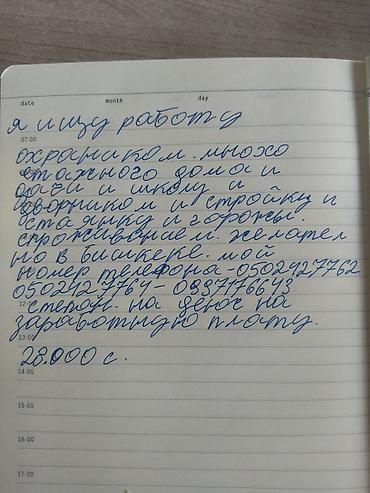 date month day
я ищу работу
07:00
охраником. много
этажного дома и
дачи и школу и
дворником и стройку и
стаянку и горожы.
с проживанием. желател
но в бишкеке. мой
номер телефона-0502927762
0502927764-0997176643
12
степан. на
заработную плату.
13:00
28.000 с.
14:00
15:00
16:00
17:00